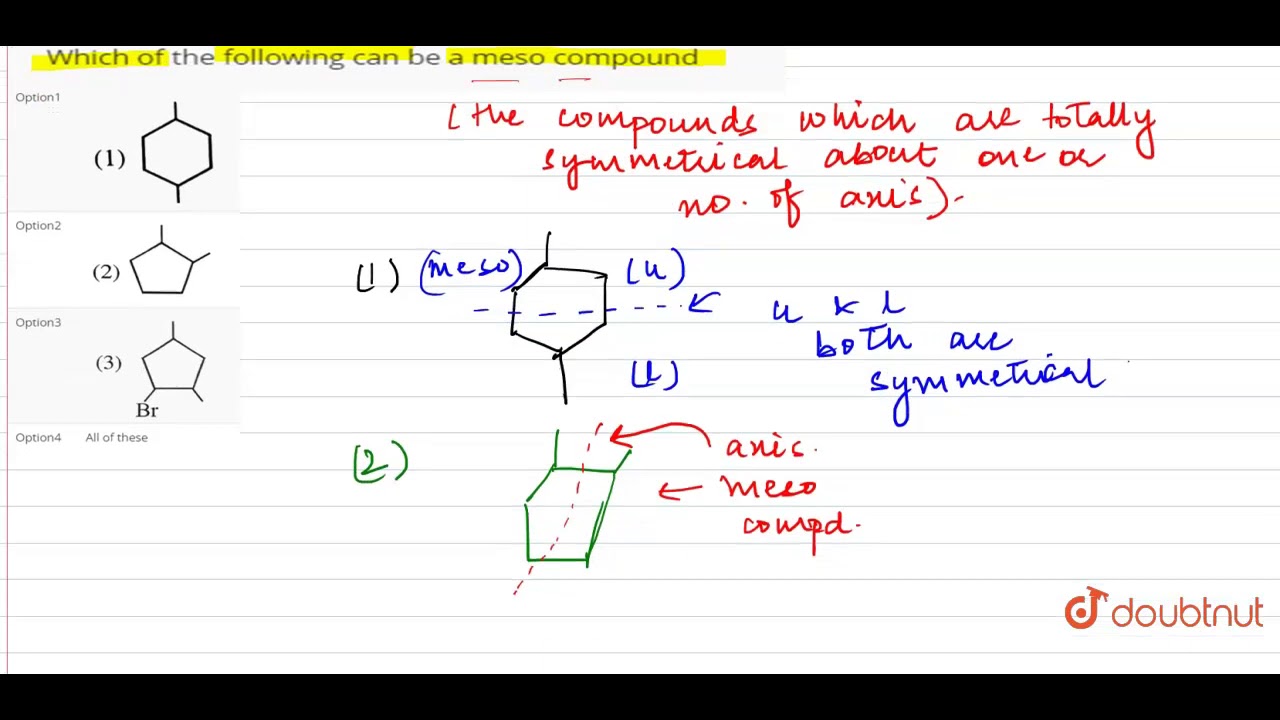 Which of the following can be a meso compound
Option1
(1)
Option2
(2)
Option3
(3)
Br
Option4 All of these
(the compounds which are totally
symmetrical about one or
no. of axis).
(1) (meso) (u)
(l)
u & l
both are
symmetrical
(2)
axis.
meso
compd.
doubtnut